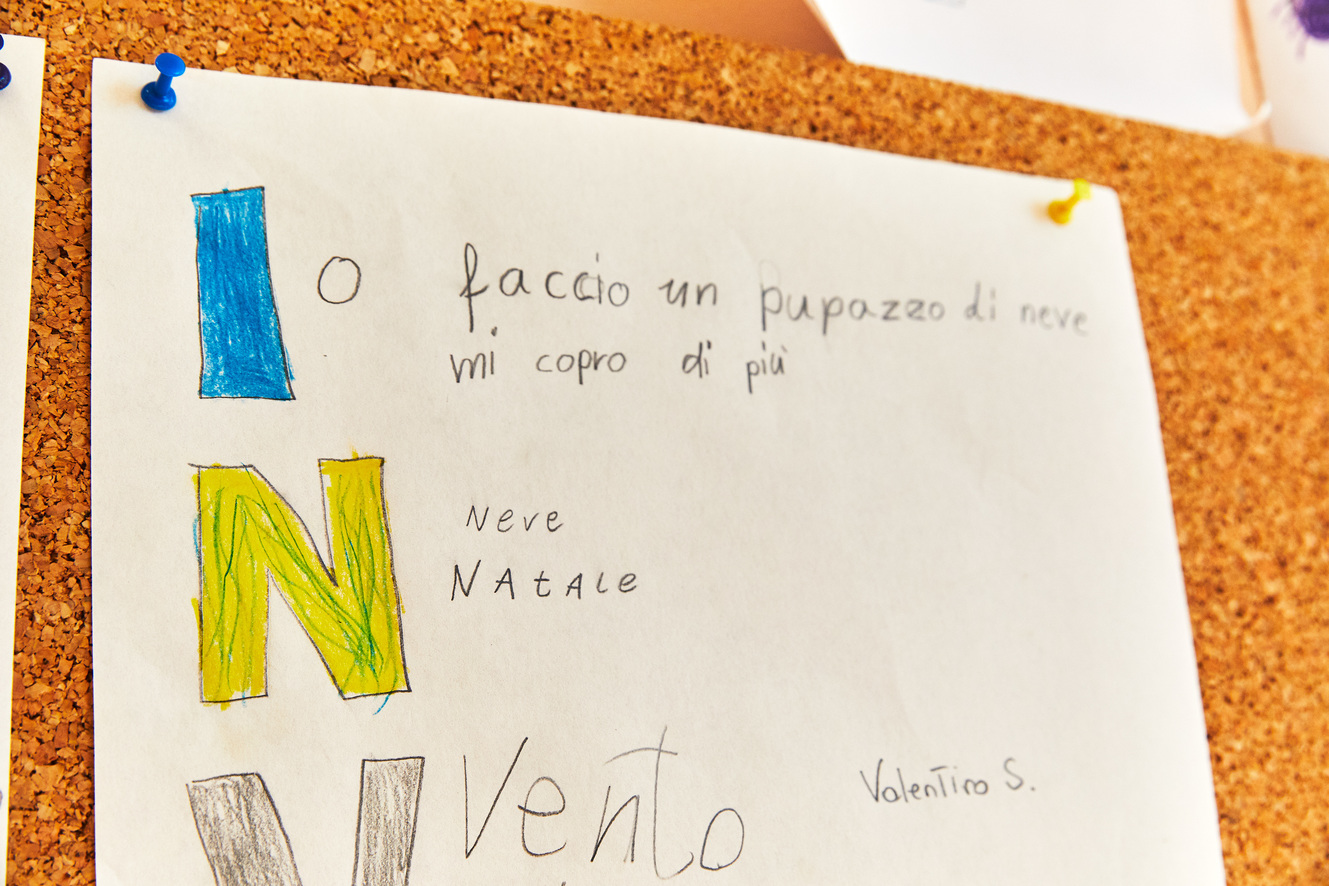 Io faccio un pupazzo di neve
mi copro di più
N Neve
NAtALe
V Vento
Valentino S.